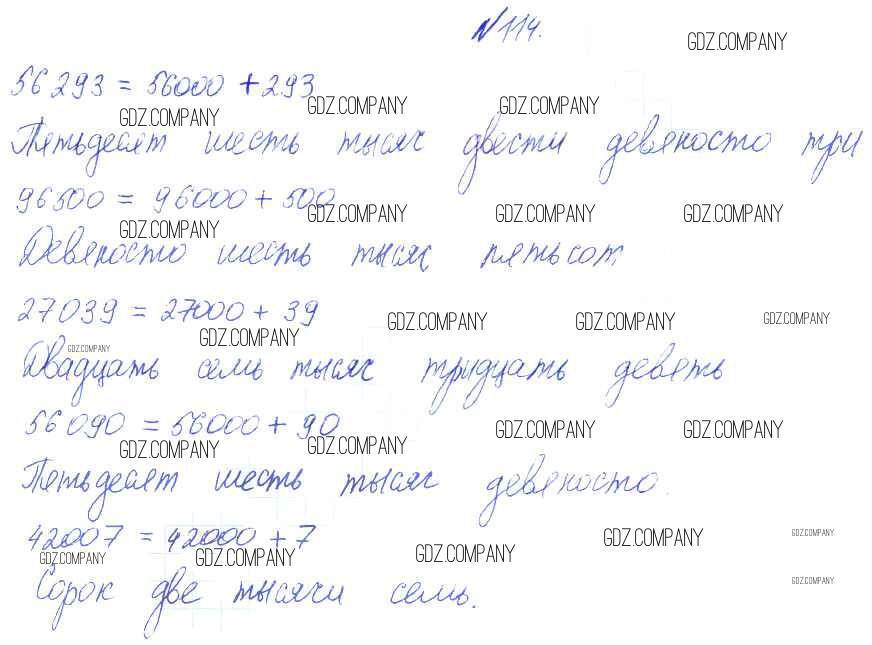 №114.
GDZ.COMPANY
56 293 = 56000 + 293
GDZ.COMPANY GDZ.COMPANY GDZ.COMPANY
Пятьдесят шесть тысяч двести девяносто три
96500 = 96000 + 500
GDZ.COMPANY GDZ.COMPANY GDZ.COMPANY GDZ.COMPANY
Девяносто шесть тысяч пятьсот
27039 = 27000 + 39
GDZ.COMPANY GDZ.COMPANY GDZ.COMPANY GDZ.COMPANY GDZ.COMPANY
Двадцать семь тысяч тридцать девять
56090 = 56000 + 90
GDZ.COMPANY GDZ.COMPANY GDZ.COMPANY GDZ.COMPANY
Пятьдесят шесть тысяч девяносто.
42007 = 42000 + 7
GDZ.COMPANY GDZ.COMPANY GDZ.COMPANY GDZ.COMPANY GDZ.COMPANY
Сорок две тысячи семь.
GDZ.COMPANY